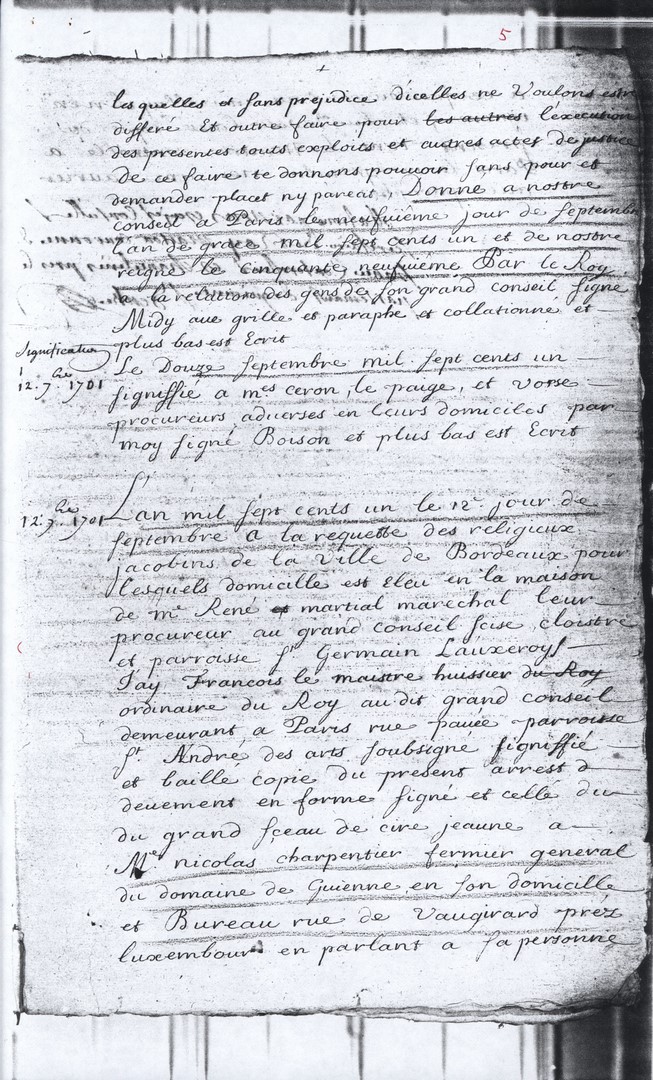 5
lesquelles et sans prejudice dicelles ne Voulons estre
differé Et outre faire pour les autres l'execution
des presentes touts exploits et autres actes de justice
De ce faire te donnons pouvoir sans pour et
demander placet ny pareat, Donne a nostre
conseil a Paris le neufuiéme jour de Septembre
Lan de grace mil sept cents un et de nostre
reigne le cinquante neufuiéme Par le Roy
a la relation des gens de son grand conseil signé
Midy aue grille et paraphe et collationné et
plus bas est Ecrit
Signification
12. 7.bre 1701
Le Douze septembre mil sept cents un
signiffié a mes ceron, le paige, et vorse
procureurs aduerses en leurs domiciles par
moy signé Boison et plus bas est Ecrit
12. 7.bre 1701
Lan mil sept cents un le 12e jour de
septembre a la requette des religieux
jacobins de la Ville de Bordeaux pour
lesquels domicille est éleu en la maison
de me René et martial marechal leur
procureur au grand conseil scise cloistre
et parroisse st Germain Lauxeroys
J'ay Francois le maistre huissier du Roy
ordinaire du Roy au dit grand conseil
demeurant a Paris rue pauée parroisse
st André des arts soubsigné signiffié
et baille copie du present arrest d
deuement en forme signé et cellé du
du grand sceau de cire jeaune a
Me nicolas charpentier fermier general
du domaine de Guienne en son domicille
et Bureau rue de Vaugirard préz
luxembourg en parlant a sa personne